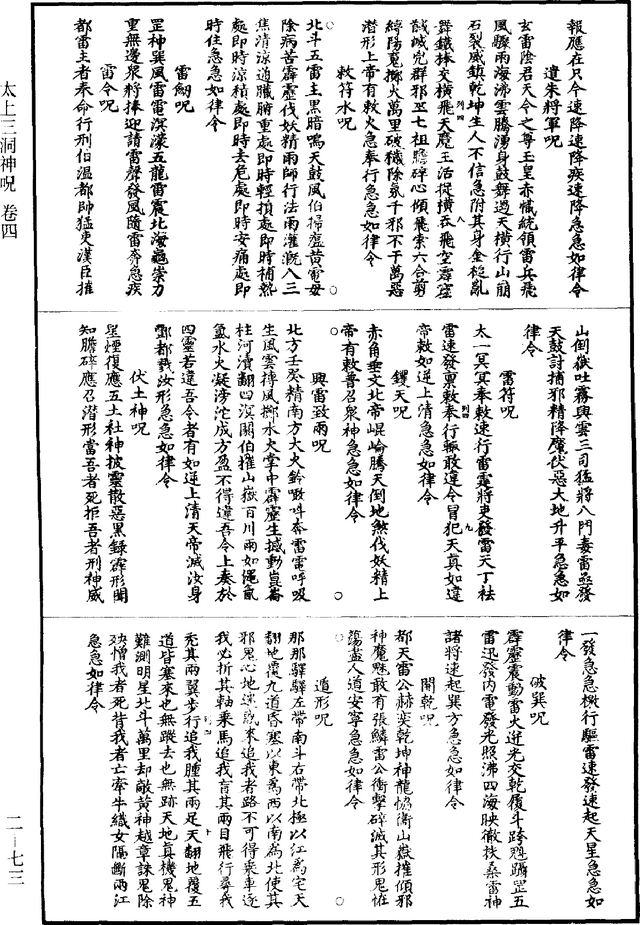 太上三洞神呪 卷四
二—七三
報應在只今速降速降疾速降急急如律令
遣朱將軍呪
玄雷陰君天令之尊玉皇赤幟統領雷兵飛
風驟雨海沸雲騰湧身鼓舞遊天橫行山崩
石裂威鎮乾坤生人不信急附其身全樅亂
舞鐵捧交橫飛天魔王活捉橫吞飛空霹靂
馘滅兇群邪巫七祖膽碎心傾飛索六合剪
縛陽冤擲火萬里破穢除氛千邪不干萬惡
潛形上帝有敕火急奉行急急如律令
敕符水呪
北斗五雷主黑暗鳴天鼓風伯掃塵黃電母
除病苦霹靂伐妖精雨師行法雨灌溉八三
焦清涼通臟腑重處即時輕損處即時補熱
處即時涼積處即時去危處即時安痛處即
時住急急如律令
雷劒呪
罡神巽風雷雷溟濛五龍雷震北海黿崇力
重無邊眾將捧迎請雷聲發風隨雷奔急疾
雷令呪
都雷主者奉命行刑伯溫都帥猛吏漢臣摧
山倒嶽吐霧興雲三司猛將八門毒雷亟發
天鼓討捕邪精降魔伏惡大地升平急急如
律令
雷符呪
太一冥冥奉敕速行雷霆將吏發雷天丁枯
雷速發稟敕奉行輒敢違令冒犯天真如違
帝敕如逆上清急急如律令
鑊天呪
赤角垂文北帝崐崘騰天倒地煞伐妖精上
帝有敕普召眾神急急如律令
興雷致雨呪
北方壬癸精南方大火鈴噉呌奔雷雷呼吸
生風雲摶風擲水火掌中霹靂生撼動崑崙
柱河瀆翻四溟關伯摧山嶽百川雨如傾氤
氳水火凝滂沱成方盈不得違吾令上奏於
四靈若違吾令者有如逆上清天帝滅汝身
酆都戮汝形急急如律令
伏土神呪
星煙復應五土社神披靈散惡黑錄霹形聞
知膽碎應召潛形當吾者死拒吾者刑神威
一發急急機行驅雷速發速起天星急急如
律令
破巽呪
霹靂震動雷火迸光交乾履斗跨魁躡罡五
雷迅發内電發光照沸四海映徹扶桑雷神
諸將速起巽方急急如律令
開乾呪
都天雷公赫奕乾坤神龍恊衛山嶽摧傾邪
神魔魅敢有張鱗雷公衝擊碎滅其形鬼怪
蕩盡人道安寧急急如律令
遁形呪
那那驛驛左帶南斗右帶北極以江為宅天
翻地覆九道昏塞以東為西以南為北使其
邪惡心地迷惑來追我者路不可得乘車逐
我必折其軸乘馬追我盲其兩目飛行尋我
禿其兩翼步行追我腫其兩足天翻地覆五
道皆塞來也無蹤去也無跡天地真機鬼神
難測明星北斗萬里却敵黃神越章誅鬼除
殃憎我者死背我者亡牽牛織女隔斷兩江
急急如律令